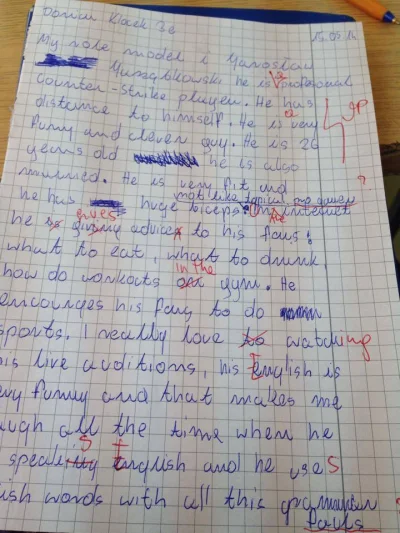 Klack 3e 15.05.14
My role model is Yarosław
Jarząbkowski he is a profesional
counter-strike player. He has
distance to himself. He is very
funny and clever guy. He is 26
years old he is also
married. He is very fit and
not like typical pro gamer
he has huge biceps. On the internet
he is gives giving advice to his fans:
what to eat, what to drink,
how do workouts in the gym. He
encourges his fans to do
sports. I really love to watching
his live auditions, his English is
very funny and that makes me
laugh all the time when he
speaking s English and he uses
lish words with all this grammar
fauls